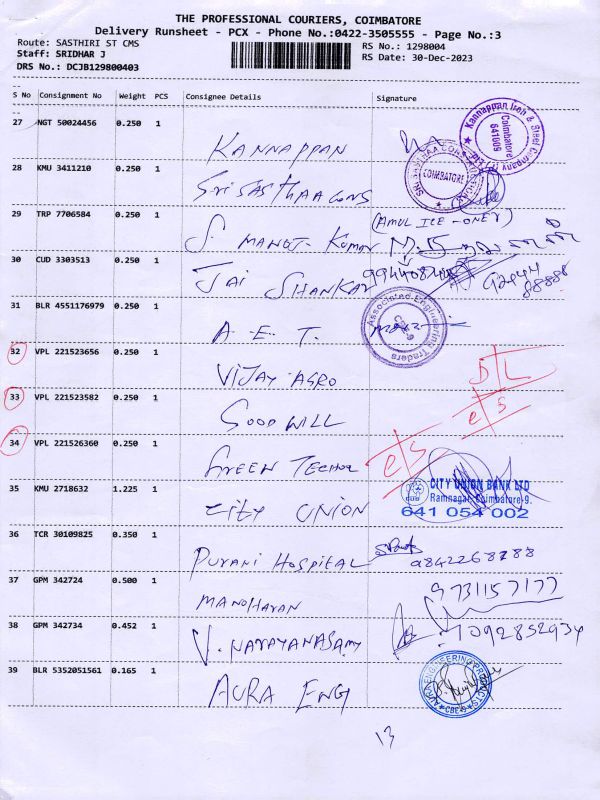 THE PROFESSIONAL COURIERS, COIMBATORE
Delivery Runsheet - PCX - Phone No.:0422-3505555 - Page No.:3
Route: SASTHIRI ST CMS
RS No.: 1298004
Staff: SRIDHAR J
RS Date: 30-Dec-2023
DRS No.: DCJB129800403
S No Consignment No Weight PCS Consignee Details Signature
27 NGT 50024456 0.250 1 KANNAPPAN
Kannappan Iron & Steel Company
Coimbatore
641009
28 KMU 3411210 0.250 1 Sri SASTHAA CONS
COIMBATORE
29 TRP 7706584 0.250 1 S MANOJ KUMAR
30 CUD 3303513 0.250 1 JAI SHANKAR
31 BLR 4551176979 0.250 1 A. E. T.
Associated Engineering Traders
32 VPL 221523656 0.250 1 VIJAY AGRO D/L
33 VPL 221523582 0.250 1 GOOD WILL c/s
34 VPL 221526360 0.250 1 GREEN c/s
35 KMU 2718632 1.225 1 CITY UNION
CITY UNION BANK LTD
Ramnagar, Coimbatore-9.
641 054 002
36 TCR 30109825 0.350 1 PURANI HOSPITAL
37 GPM 342724 0.500 1 MANOHARAN 9731157177
38 GPM 342734 0.452 1 V. NARAYANASAMY 7092852934
39 BLR 5352051561 0.165 1 AURA ENGI
AURA ENGINEERING PRODUCTS
CBE-9
13